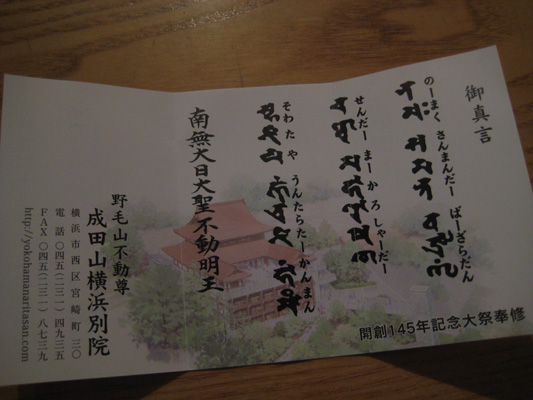 御真言
のーまく さんまんだー ばーざらだん
せんだー まーかろしゃーだー
そわたや うんたらたーかんまん
南無大日大聖不動明王
野毛山不動尊
成田山横浜別院
横浜市西区宮崎町三〇
電話〇四五(二三一)四九三五
FAX〇四五(二三一)八七三九
http://yokohamanaritasan.com
開創145年記念大祭奉修